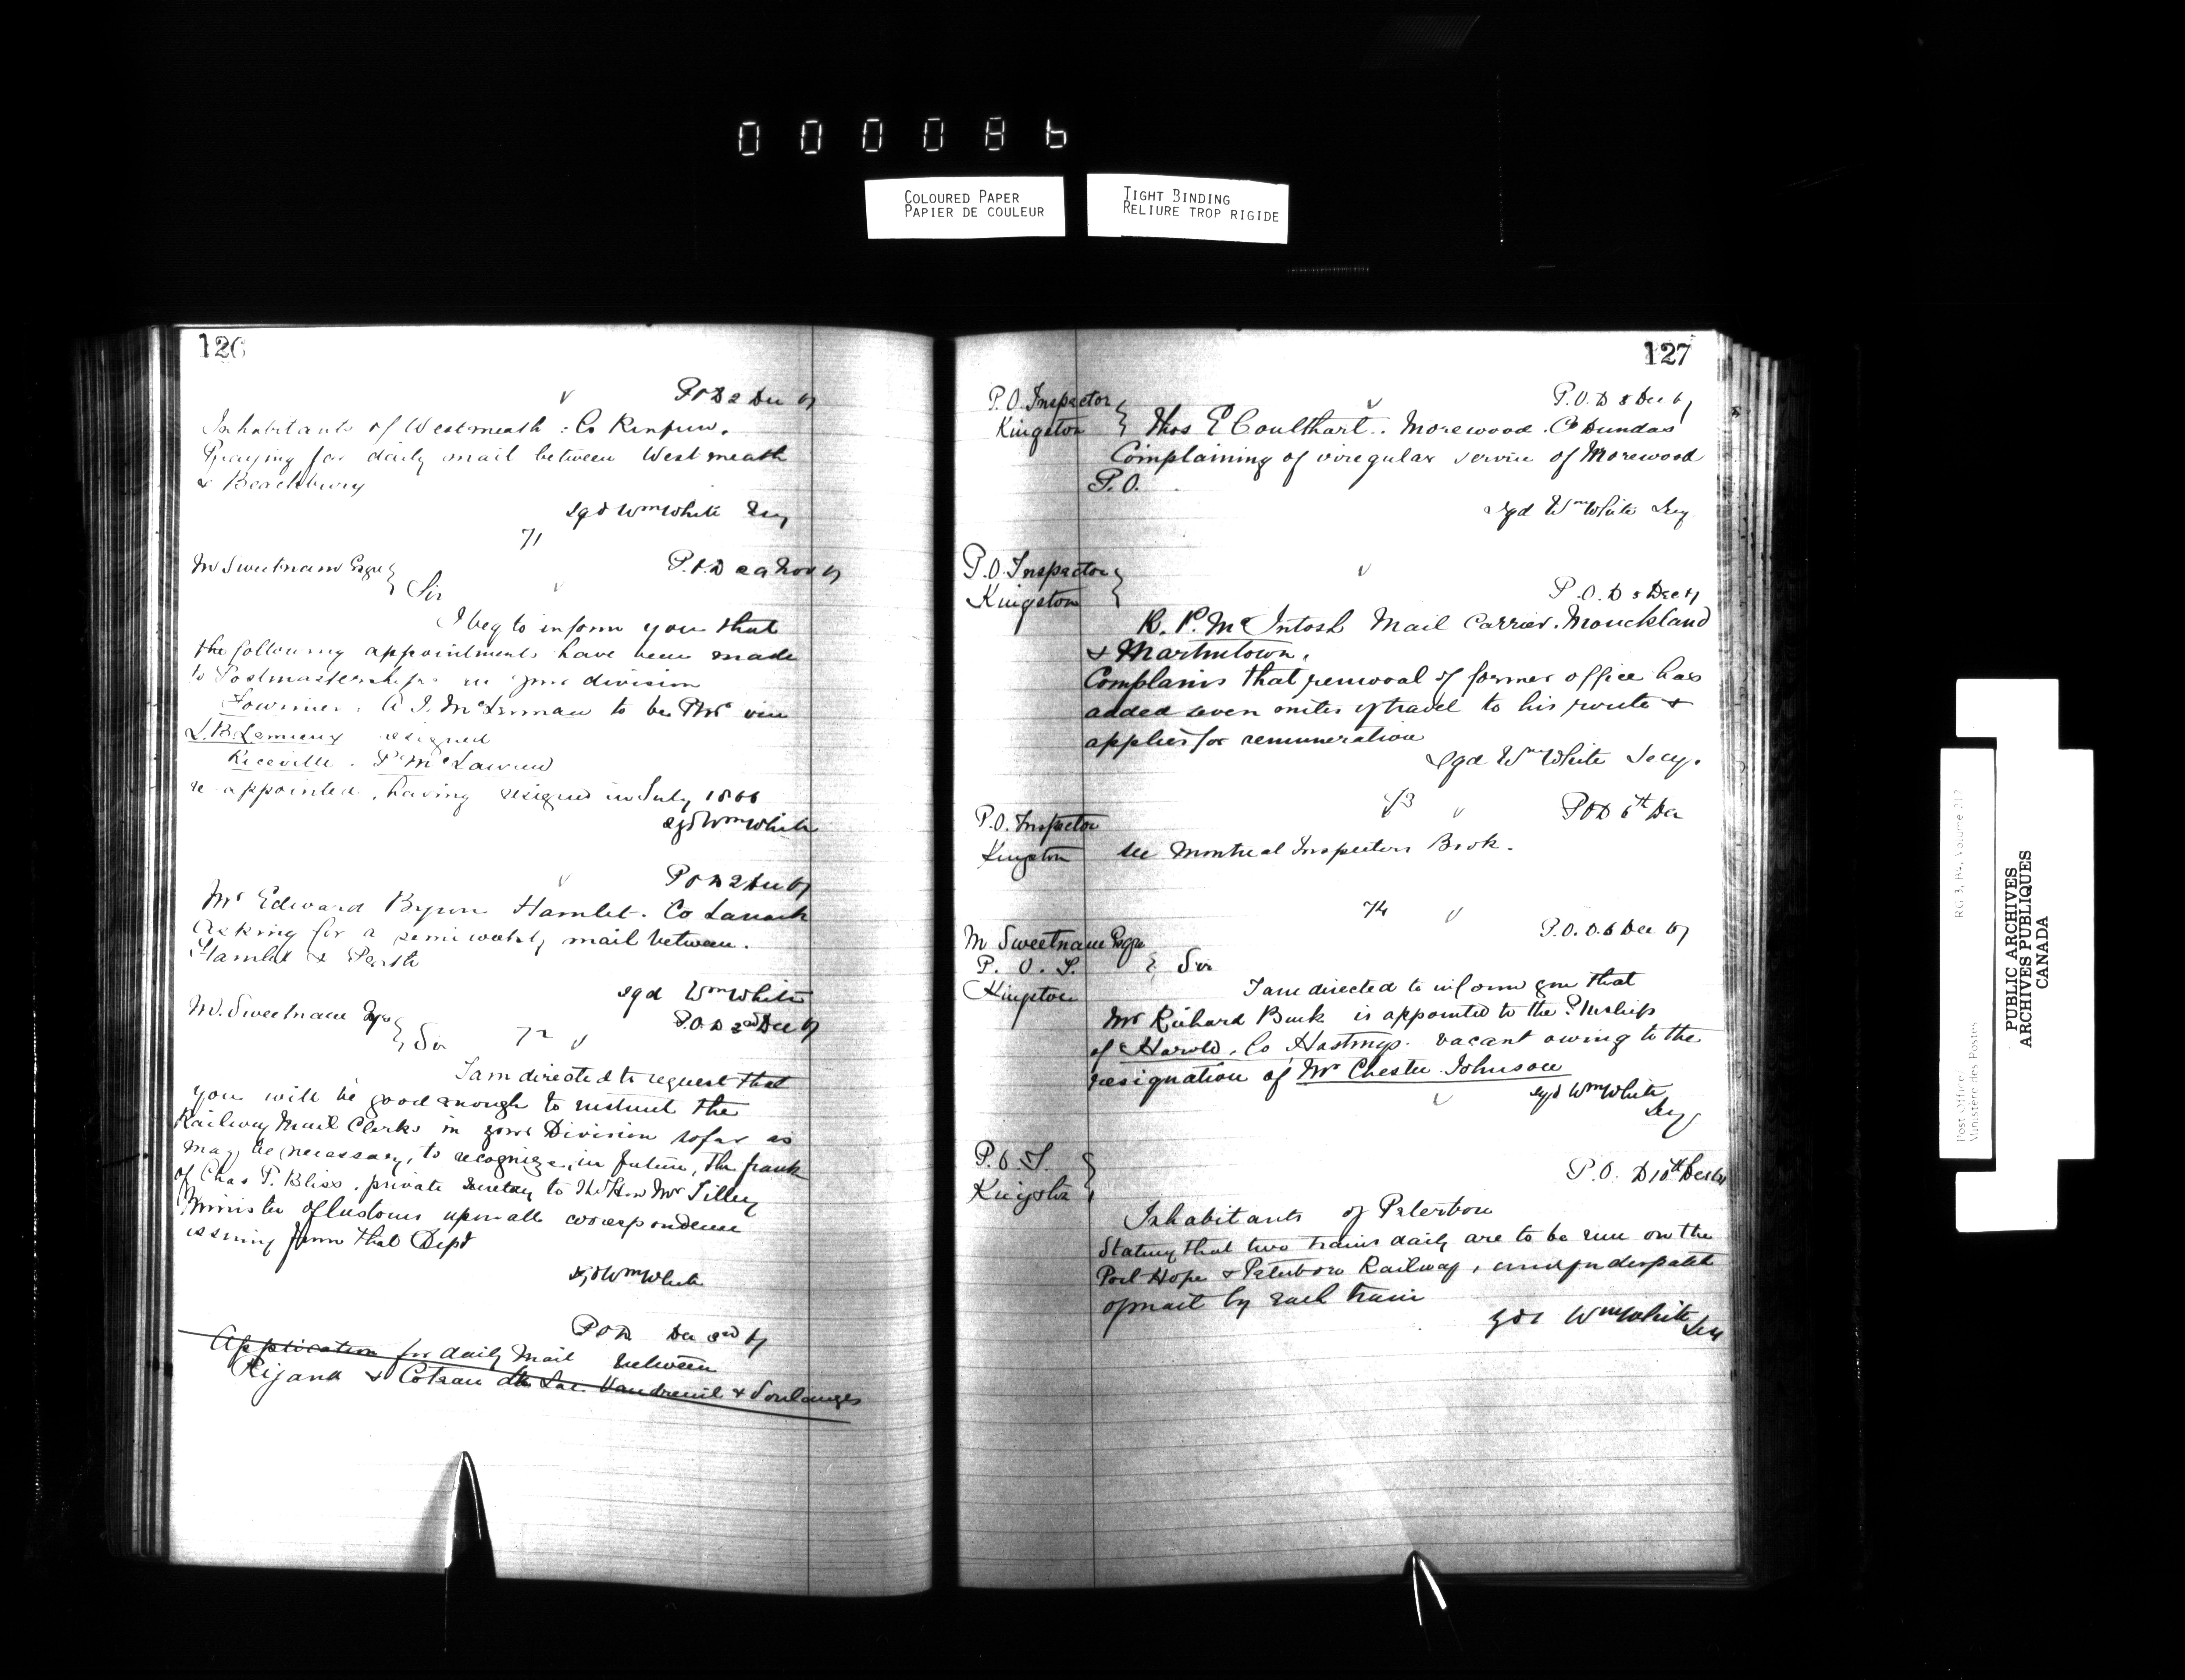 000086
COLOURED PAPER
PAPIER DE COULEUR
TIGHT BINDING
RELIURE TROP RIGIDE
126
P.O.D 2 Dec 67
Inhabitants of Westmeath. Co Renfrew.
Praying for daily mail between Westmeath
& Beachburg
sgd Wm White Secy
71
M Sweetnam Esqre
P.O.D 29 Nov 67
Sir
I beg to inform you that
the following appointments have been made
to Postmasterships in your division
Fournier. A. J. McLennan to be PMr vice
L.B. Lemieux resigned
Riceville. P McLaurin
re appointed, having resigned in July 1866
sgd Wm White
P.O.D 2 Dec 67
Mr Edward Byrne Hamlet. Co Lanark
Asking for a semi weekly mail between.
Hamlet & Perth
sgd Wm White
M. Sweetnam Esqre
P.O.D 2nd Dec 67
Sir 72
I am directed to request that
you will be good enough to instruct the
Railway Mail Clerks in your Division so far as
may be necessary, to recognize, in future, the frank
of Chas P. Bliss. private secretary to The Hon Mr Tilley
Minister of Customs upon all correspondence
issuing from that Dept
sgd Wm White
P.O.D Dec 3rd 67
Application for daily Mail between
Rigaud & Coteau du Lac Vaudreuil & Soulanges
127
P.O. Inspector
Kingston
P.O.D 5 Dec 67
Thos E Coulthart. Morewood. Co Dundas
Complaining of irregular service of Morewood
P.O.
sgd Wm White Secy
P.O. Inspector
Kingston
P.O.D 5 Dec 67
R. P. McIntosh Mail Carrier. Monckland
& Martintown.
Complains that removal of former office has
added seven miles of travel to his route &
applies for remuneration
sgd Wm White Secy.
73
P.O.D 6th Dec
P.O. Inspector
Kingston
See Montreal Inspectors Book.
74
P.O.D. 6 Dec 67
M Sweetnam Esqre
P. O. I.
Kingston
Sir
I am directed to inform you that
Mr Richard Buck is appointed to the P. Mship
of Harold, Co Hastings. vacant owing to the
resignation of Mr Chester Johnson
sgd Wm White
Secy
P.O.I.
Kingston
P.O. D 10th Dec 67
Inhabitants of Peterboro
Stating that two trains daily are to be run on the
Port Hope & Peterboro Railway, despatch
of mail by each train
sgd Wm White
Secy
Post Office
Ministère des Postes
RG 3, B4, Volume 217
PUBLIC ARCHIVES
ARCHIVES PUBLIQUES
CANADA